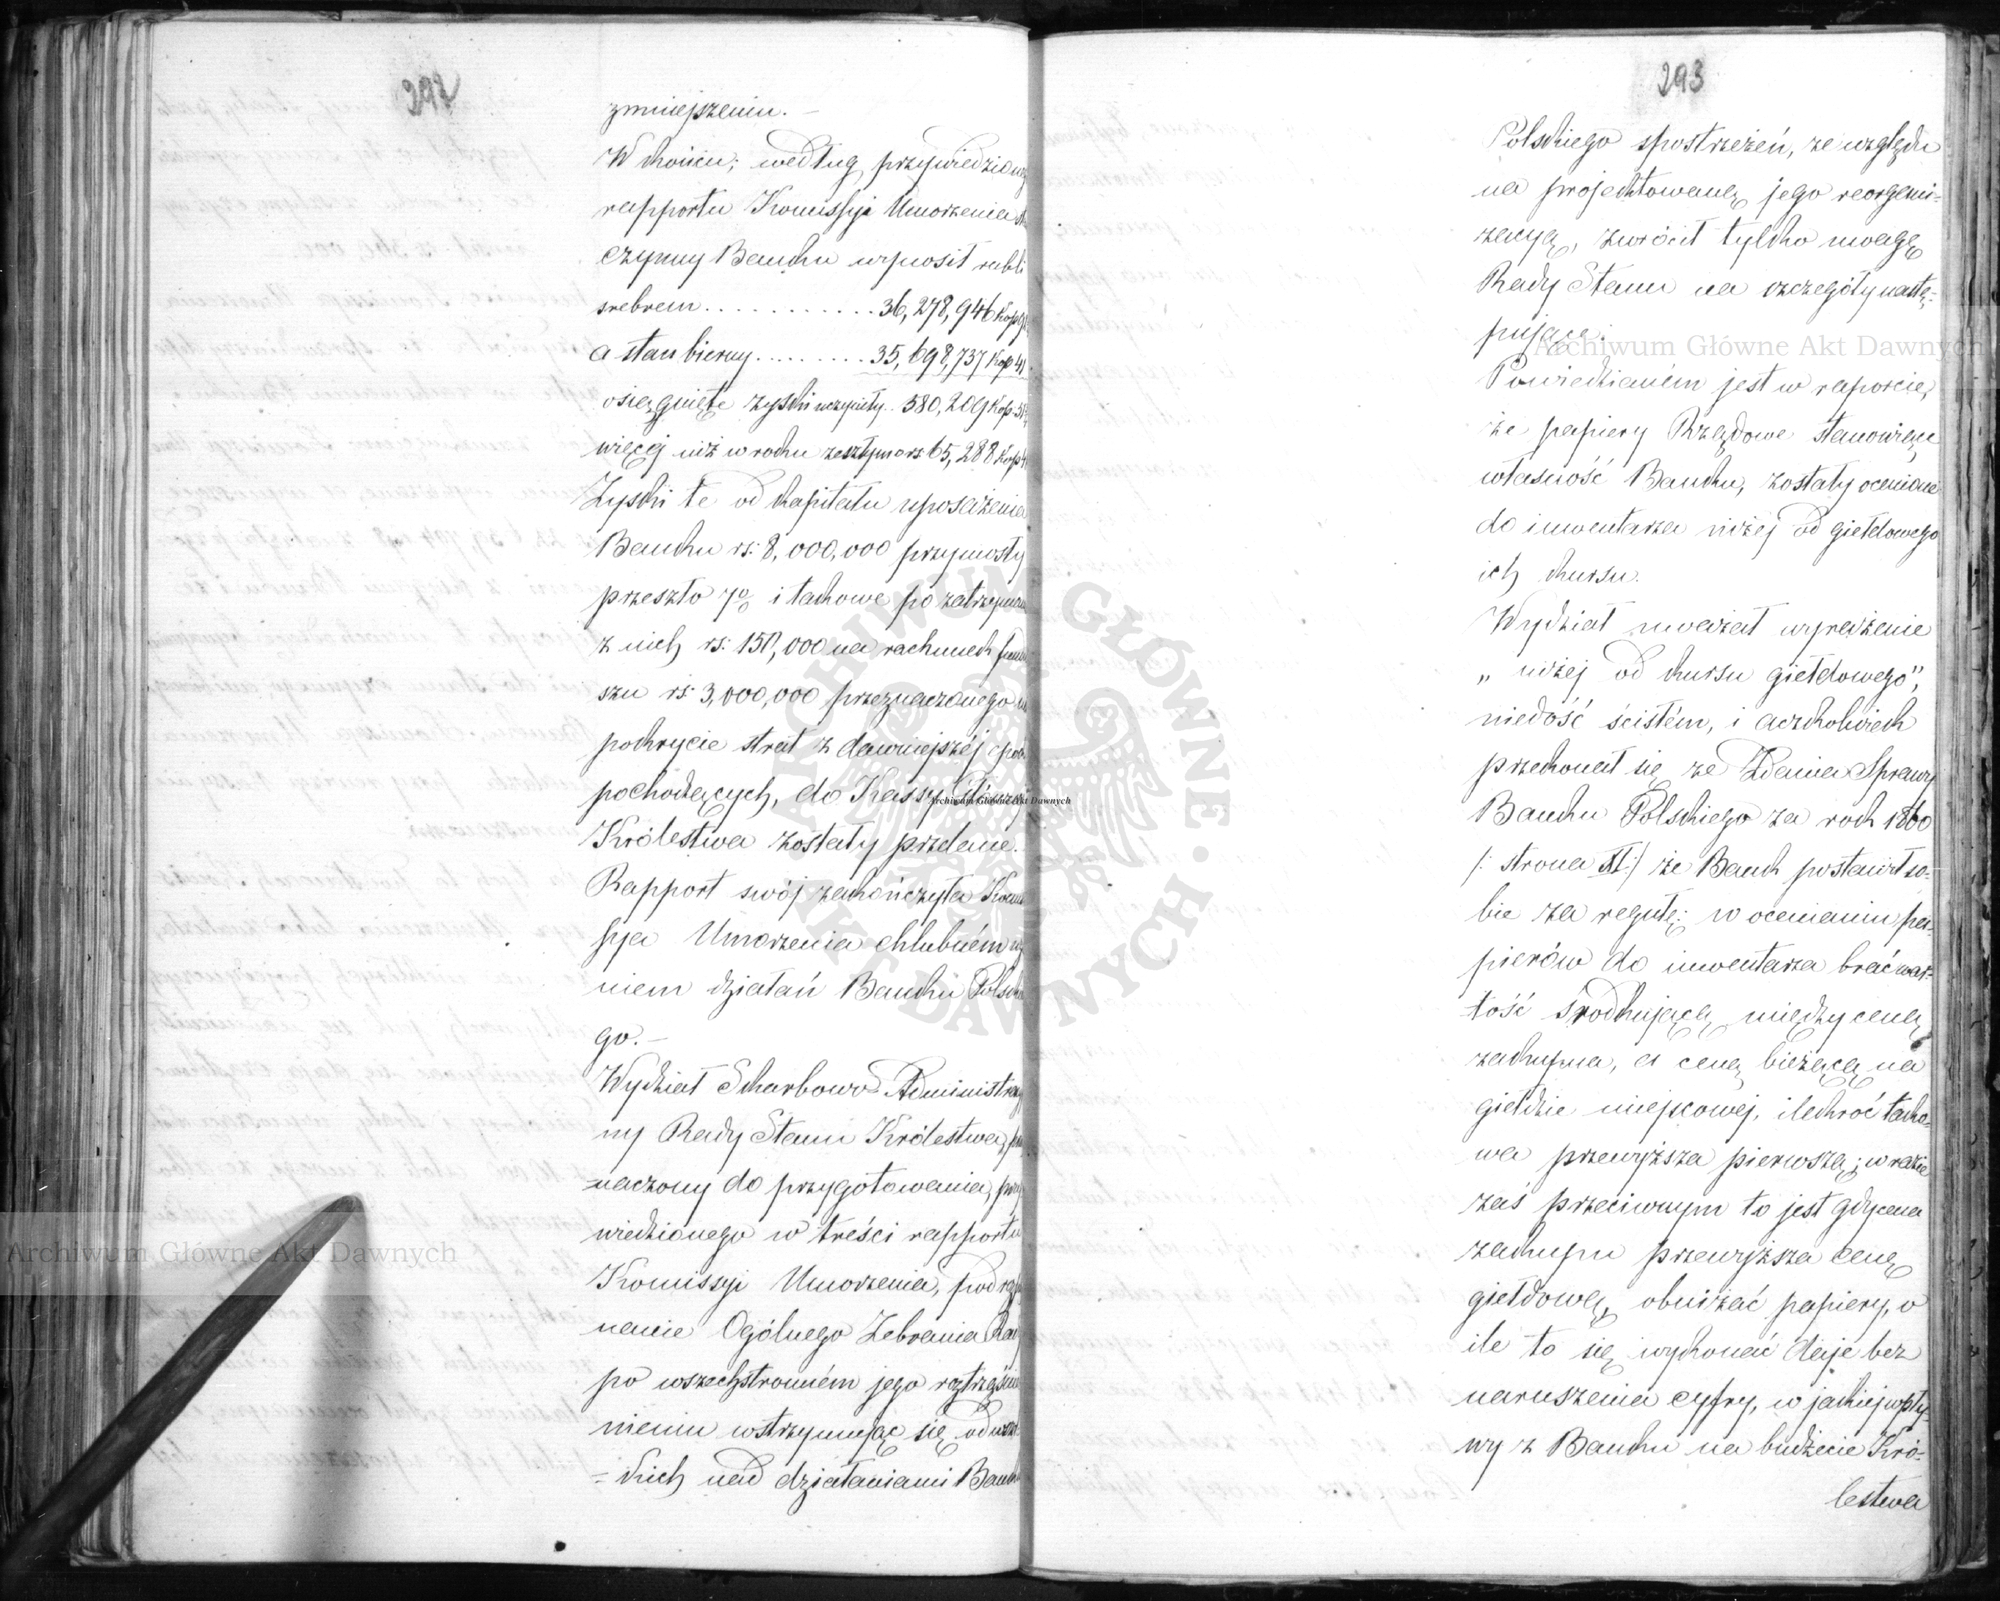 292
zmniejszeniu. —
W końcu, według przywiedzionego
rapportu Komissyi Umorzenia
czynny Banku wynosił rubli
srebrem ............ 36,278,946 kop
a stan bierny ......... 35,698,737 Kop 41
osiągnięte zyski uczyniły .. 580,209 Kop.
więcej niż w roku zeszłym o rs 65,288 Kop
Zyski te od kapitału uposażenia
Banku rs: 8,000,000 przyniosły
przeszło 7% i takowe po zatrzymaniu
z nich rs: 150,000 na rachunek fundu
szu rs: 3,000,000 przeznaczonego na
pokrycie strat z dawniejszej epoki
pochodzących, do Kassy Głównej
Królestwa zostały przelane.
Rapport swój zakończyła Komis
syja Umorzenia chlubném
niem działań Banku Polskie
go. —
Wydział Skarbowo-Administracyj
ny Rady Stanu Królestwa,
naczony do przygotowania, przy
wiedzionego w treści rapportu
Komissyi Umorzenia, pod rozpo
znanie Ogólnego Zebrania Rady
po wszechstronném jego roztrząśnie
nieniu wstrzymując się od wszel
= kich nad działaniami Banku
293
Polskiego spostrzeżeń, ze względu
na projektowaną jego reorgani-
zacyą, zwrócił tylko uwagę
Rady Stanu na szczegóły nastę-
pujące:
Powiedzianém jest w raporcie,
że papiery Rządowe stanowiące
własność Banku, zostały ocenione
do inwentarza niżej od giełdowego
ich kursu.
Wydział uważał wyrażenie
„niżej od kursu giełdowego",
niedość ścisłém, i aczkolwiek
przekonał się ze Zdania Sprawy
Banku Polskiego za rok 1860
/: strona XI:/ że Bank postawił so-
bie za regułę: w ocenianiu pa-
pierów do inwentarza brać war-
tość środkującą między ceną
zakupna, a ceną bieżącą na
giełdzie miejscowej, ilekroć tako-
wa przewyższa pierwszą; w razie
zaś przeciwnym to jest gdy cena
zakupu przewyższa cenę
giełdową, obniżać papiery, o
ile to się wykonać daje bez
naruszenia cyfry, w jakiej wpły-
wy z Banku na budżecie Kró-
lestwa
Archiwum Główne Akt Dawnych
Archiwum Główne Akt Dawnych
Archiwum Główne Akt Dawnych
ARCHIWUM GŁÓWNE AKT DAWNYCH